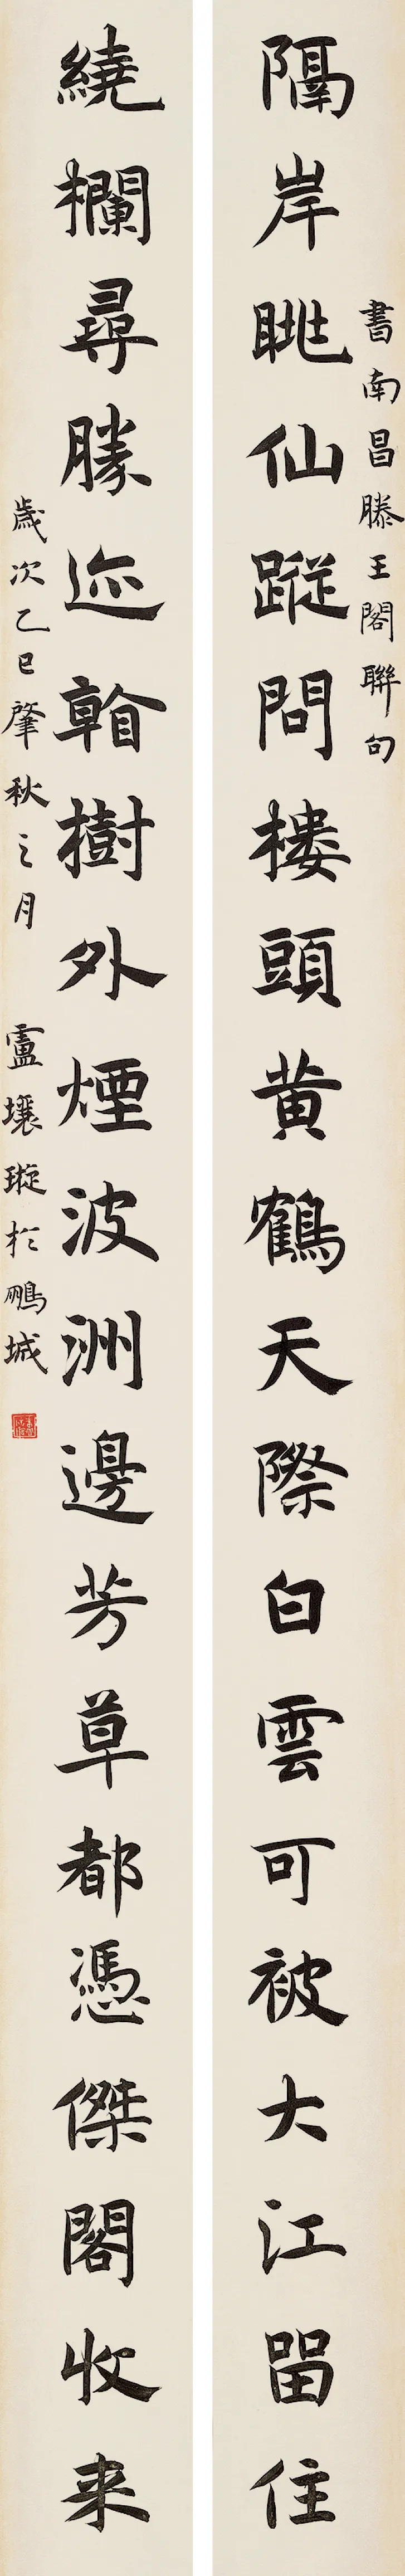 書南昌滕王閣聯句
隔岸眺仙蹤問樓頭黄鶴天際白雲可被大江畱住
繞欄尋勝迹看樹外煙波洲邊芳草都憑傑閣收来
歲次乙巳肇秋之月 盧壤璇於鵬城